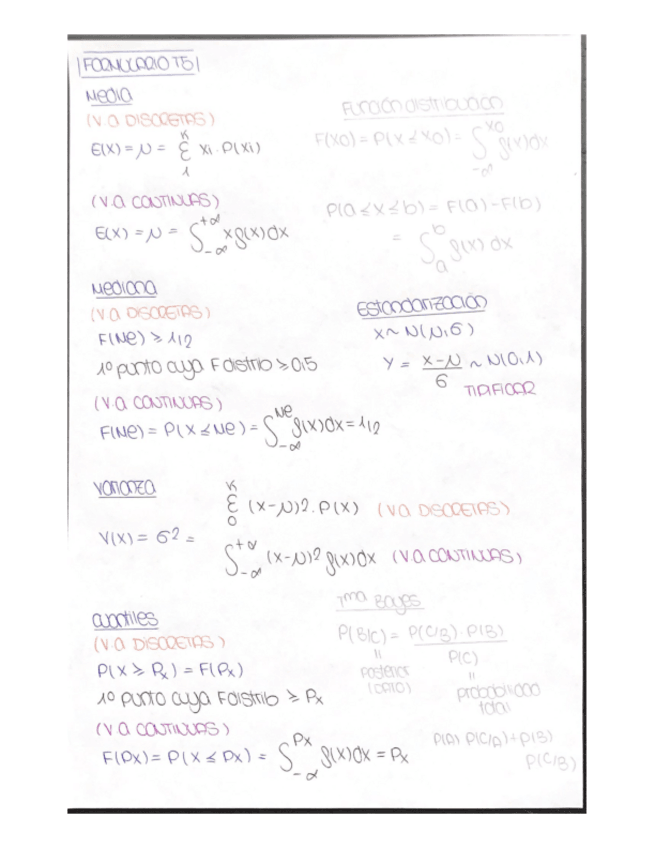 FORMULARIO T5
Media
(V.a DISCRETAS)
E(X) = μ = Σ xi · P(xi)
K
1
(V.a CONTINUAS)
E(X) = μ = ∫ x f(x) dx
+∞
-∞
Función distribución
F(X0) = P(X ≤ X0) = ∫ f(x) dx
X0
-∞
P(a ≤ X ≤ b) = F(a) - F(b)
= ∫ f(x) dx
b
a
Mediana
(V.a DISCRETAS)
F(Me) ≥ 1/2
1º punto cuya F distrib ≥ 0,5
(V.a CONTINUAS)
F(Me) = P(X ≤ Me) = ∫ f(x) dx = 1/2
Me
-∞
Estandarización
X ~ N(μ, σ)
Y = (X - μ) / σ ~ N(0,1)
TIPIFICAR
Varianza
V(X) = σ2 =
K
Σ (x - μ)2 · P(x) (V.a DISCRETAS)
0
+∞
∫ (x - μ)2 f(x) dx (V.a CONTINUAS)
-∞
Cuantiles
(V.a DISCRETAS)
P(X ≥ Px) = F(Px)
1º punto cuya F distrib ≥ Px
(V.a CONTINUAS)
F(Px) = P(X ≤ Px) = ∫ f(x) dx = Px
Px
-∞
Tma Bayes
P(B/C) = P(C/B) · P(B) / P(C)
"
posterior
"
probabilidad
total
P(A) P(C/A) + P(B)
P(C/B)